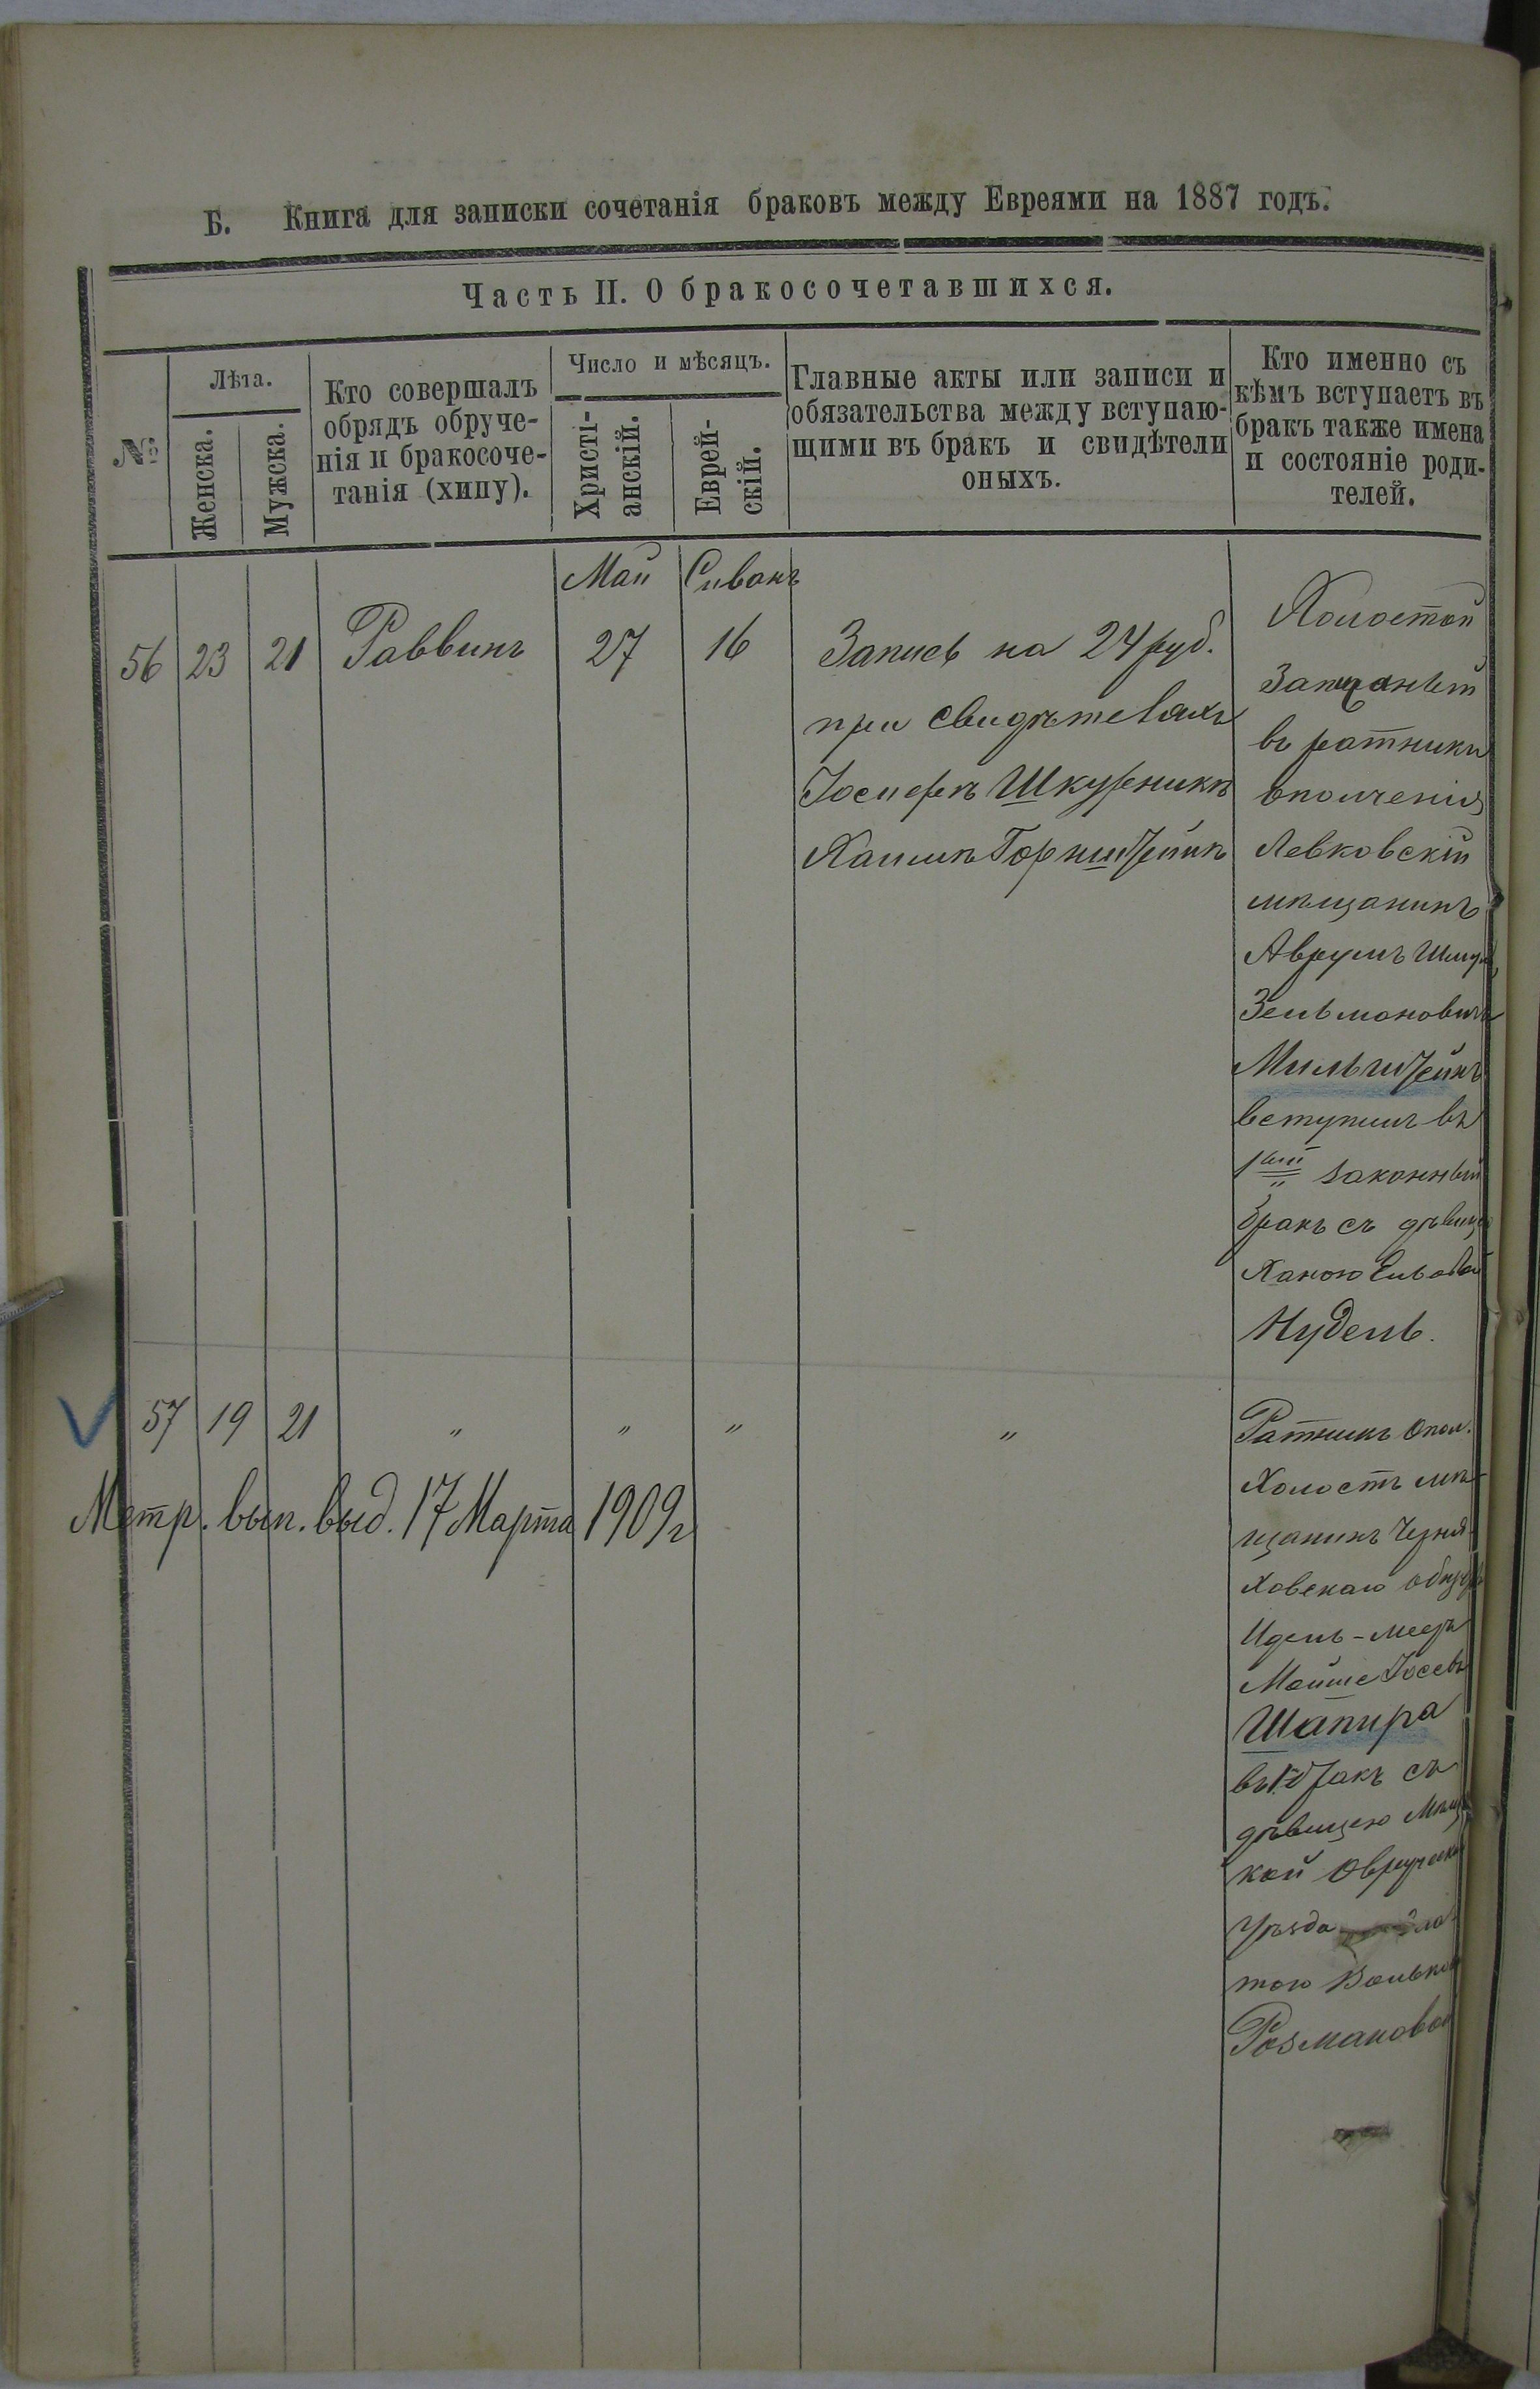 Б. Книга для записки сочетанія браковъ между Евреями на 1887 годъ.
Часть II. О бракосочетавшихся.
№
Лѣта.
Женска.
Мужска.
Кто совершалъ
обрядъ обруче-
нія и бракосоче-
танія (хипу).
Число и мѣсяцъ.
Христі-
анскій.
Еврей-
скій.
Главные акты или записи и
обязательства между вступаю-
щими въ бракъ и свидѣтели
оныхъ.
Кто именно съ
кѣмъ вступаетъ въ
бракъ также имена
и состояніе роди-
телей.
Май Сиванъ
56 23 21 Раввинъ 27 16
Запись на 24 руб.
при свидѣтеляхъ
Іосифѣ Шкурникѣ
Хаимѣ Горнштейнѣ
Холостой
въ ратники
ополченія
Левковскій
мѣщанинъ
Аврумъ Шмуль
Зельмановичъ
Мильштейнъ
вступилъ въ
1ый законный
бракъ съ дѣвицею
Ханою
Нудель.
57 19 21 " " " "
Метр. вып. выд. 17 Марта 1909 г
Ратникъ опол.
Холостъ мѣ-
щанинъ Черня-
ховскаго
Идель-Мееръ
Мойше Іосевъ
Шапира
въ 1й бракъ съ
дѣвицею
кой Овручскаго
уѣзда
тою
Розмановой